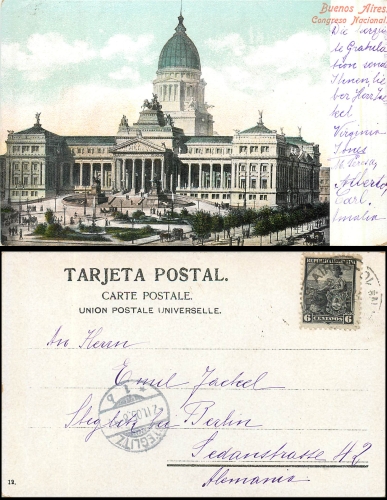 Buenos Aires.
Congreso Nacional.
Die herzlich
ste Gratula
tion sendet
Ihnen, lie
ber Herr Ja
ckel
Virginia
Ines
Alberto
Carl.
Amalia
TARJETA POSTAL.
CARTE POSTALE.
UNION POSTALE UNIVERSELLE.
REPUBLICA ARGENTINA
6 CENTAVOS 6
An Herrn
Emil Jackel
Steglitz bei Berlin
Sedanstrasse 42
Alemania
STEGLITZ
12.